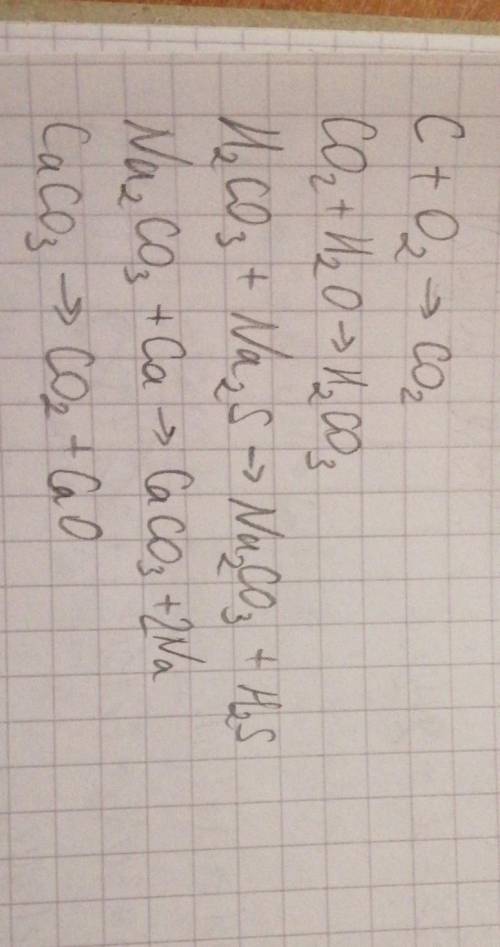 C + O₂ → CO₂
CO₂ + H₂O → H₂CO₃
H₂CO₃ + Na₂S → Na₂CO₃ + H₂S
Na₂CO₃ + Ca → CaCO₃ + 2Na
CaCO₃ → CO₂ + CaO